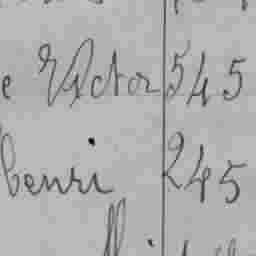 e Victor 545
henri 245